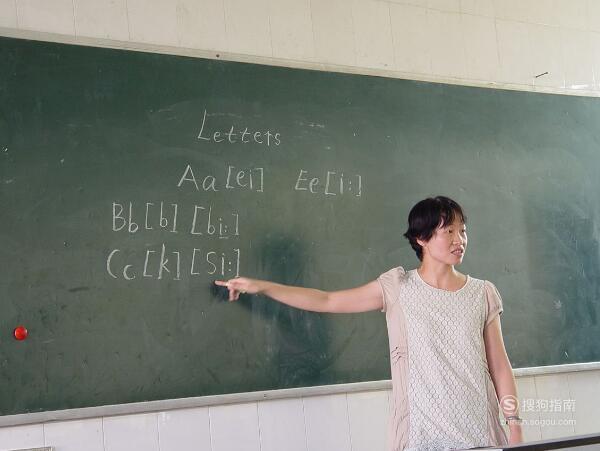 Letters
Aa [ei] Ee [i:]
Bb [b] [bi:]
Cc [k] [si:]
搜狗指南
zhinan.sogou.com